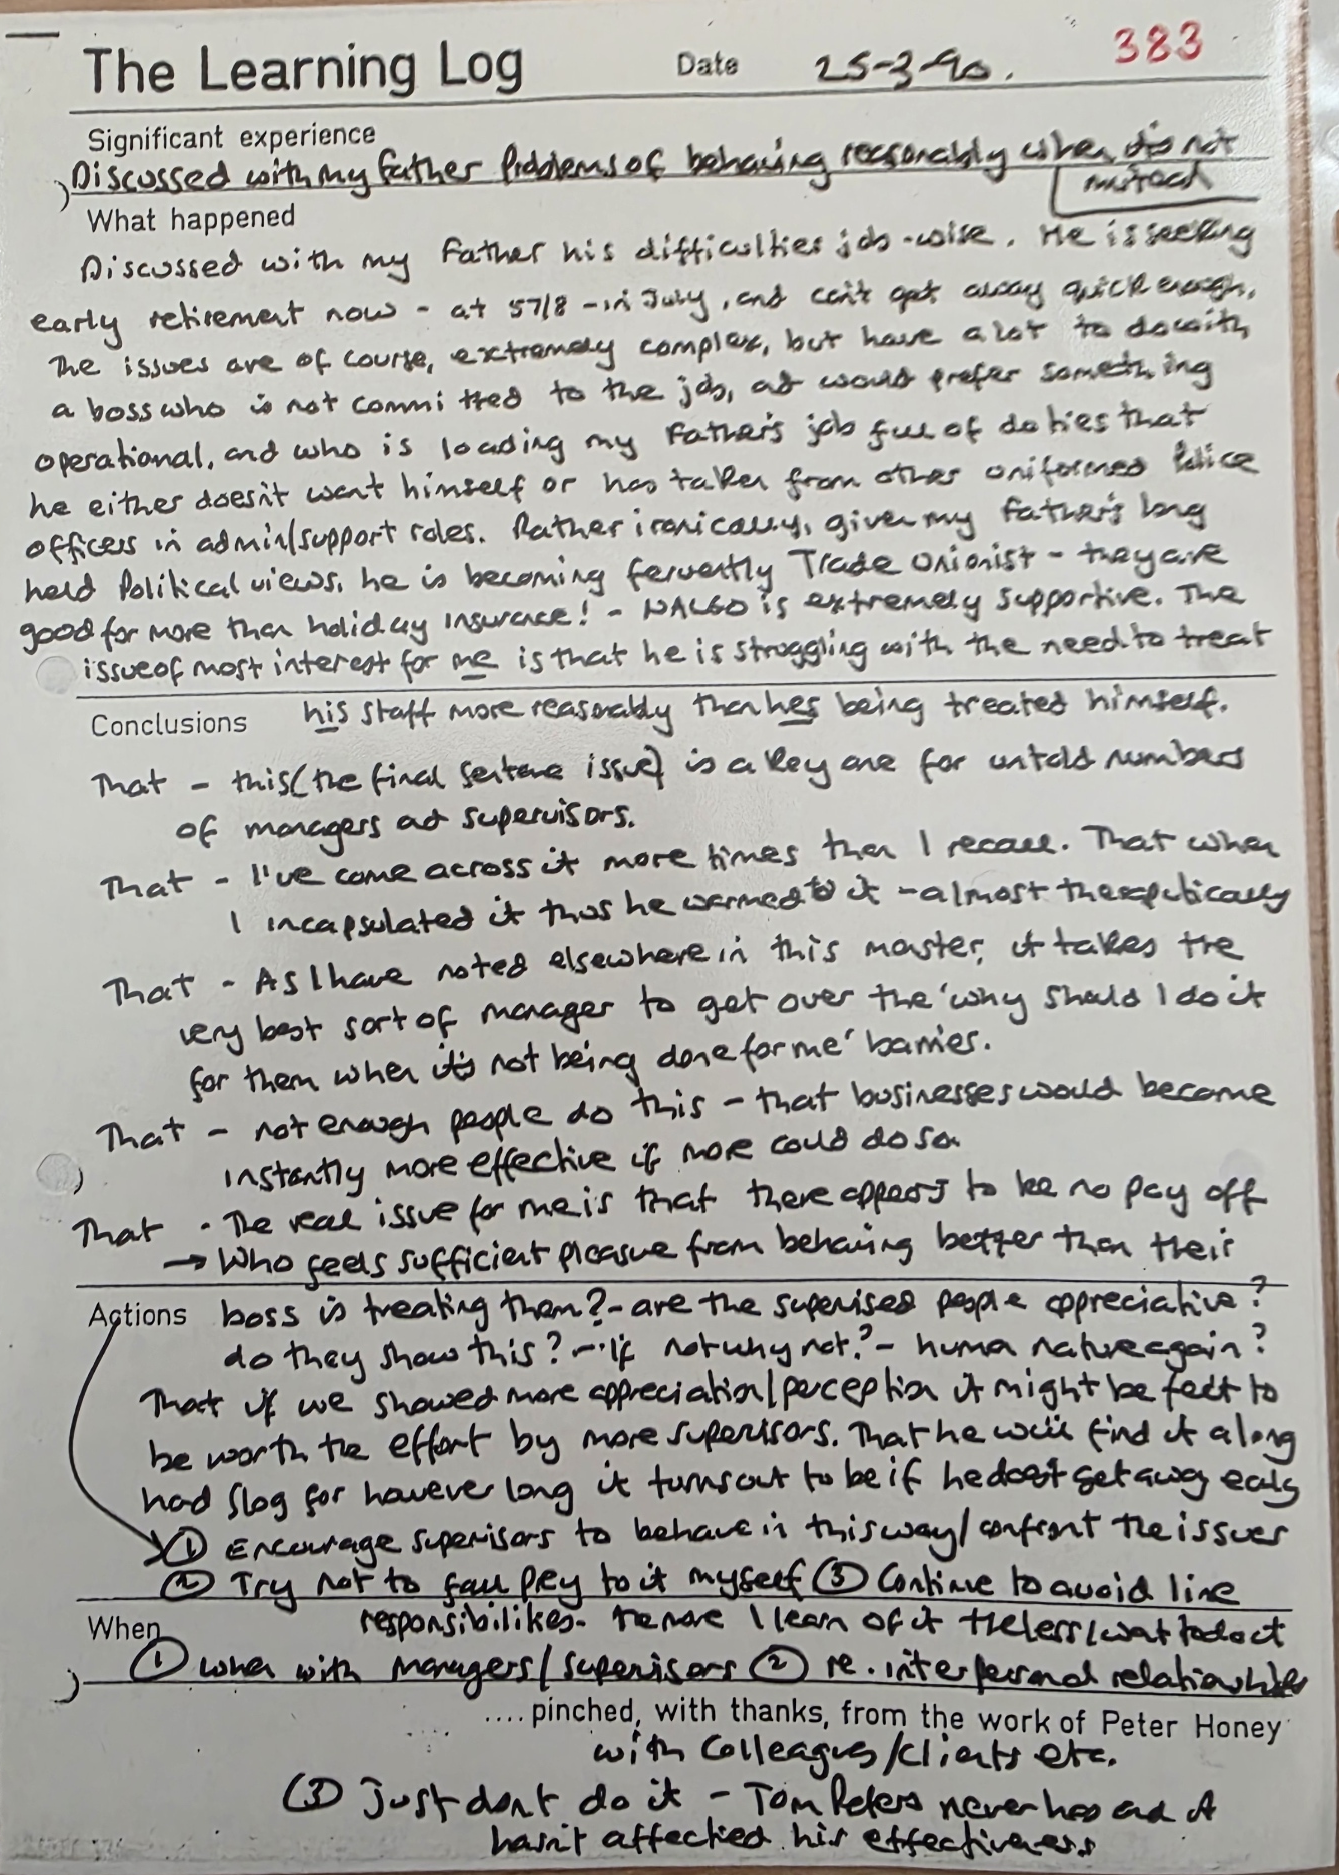 The Learning Log Date 25-3-90. 383
Significant experience
Discussed with my father Problems of behaving reasonably when it's not
mutual
What happened
Discussed with my father his difficulties job-wise. He is seeking
early retirement now - at 57/8 - in July, and can't get away quick enough,
The issues are of course, extremely complex, but have a lot to do with
a boss who is not committed to the job, and would prefer something
operational, and who is loading my father's job full of duties that
he either doesn't want himself or has taken from other uniformed Police
officers in admin/support roles. Rather ironically, given my father's long
held Political views, he is becoming fervently Trade Unionist - they are
good for more than holiday insurance! - NALGO is extremely supportive. The
issue of most interest for me is that he is struggling with the need to treat
Conclusions his staff more reasonably than he's being treated himself.
That - this (the final sentence issue) is a key one for untold numbers
of managers and supervisors.
That - I've come across it more times than I recall. That when
I incapsulated it thus he warmed to it - almost therapeutically
That - As I have noted elsewhere in this master, it takes the
very best sort of manager to get over the 'why should I do it
for them when it's not being done for me' barrier.
That - not enough people do this - that businesses would become
instantly more effective if more could do so.
That - The real issue for me is that there appears to be no pay off
→ Who feels sufficient pleasure from behaving better than their
Actions boss is treating them? - are the supervised people appreciative?
do they show this? - If not why not? - human nature again?
That if we showed more appreciation/perception it might be felt to
be worth the effort by more supervisors. That he will find it a long
hard slog for however long it turns out to be if he doesn't get away early
① Encourage supervisors to behave in this way/confront the issues
② Try not to fall prey to it myself ③ Continue to avoid line
responsibilities. The more I learn of it the less I want to do it
When
① when with managers/supervisors ② re. interpersonal relationships
.... pinched, with thanks, from the work of Peter Honey
with colleagues/clients etc.
③ Just don't do it - Tom Peters never has and it
hasn't affected his effectiveness